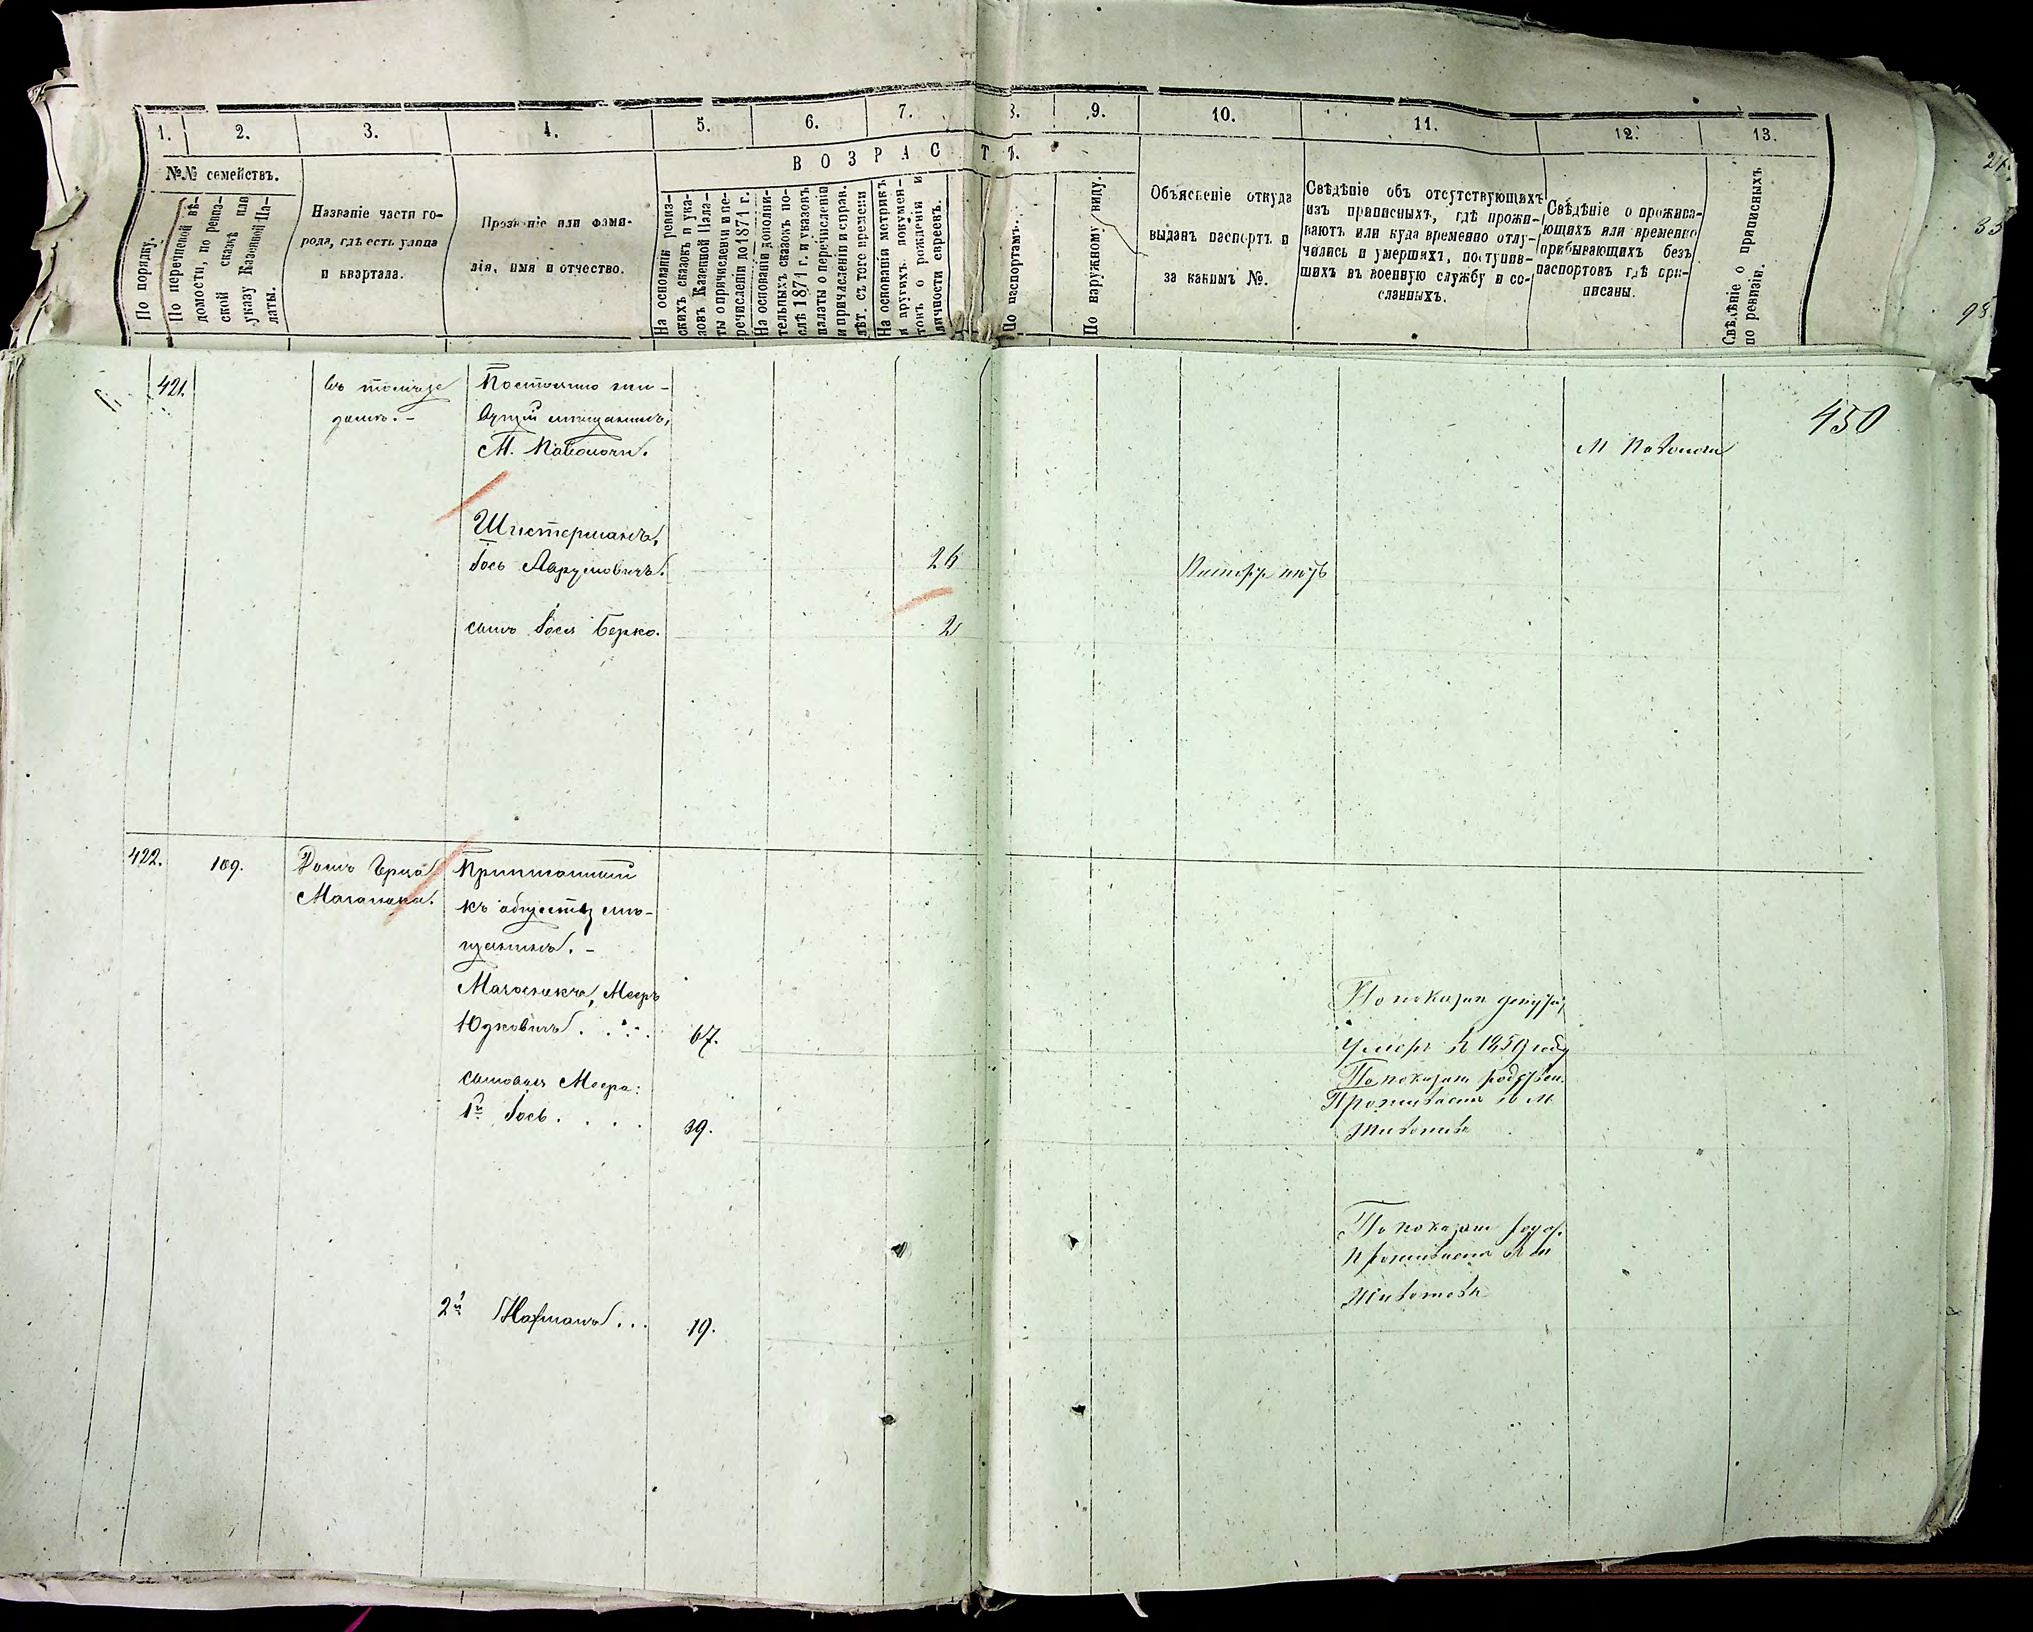 1.
2.
3.
4.
5.
6.
7.
9.
10.
11.
12.
13.
ВОЗРАСТЪ.
№№ семействъ.
По порядку.
По перечневой вѣ-
домости, по ревиз-
ской сказкѣ или
указу Казенной Па-
латы.
Названіе части го-
рода, гдѣ есть улица
и квартала.
Прозваніе или фами-
лія, имя и отчество.
На основаніи ревиз-
скихъ сказокъ и ука-
зовъ Казенной Пала-
ты о причисленіи и пе-
речисленіи до 1874 г.
На основаніи дополни-
тельныхъ сказокъ по-
слѣ 1874 г. и указовъ
палаты о перечисленіи
и причисленіи и справ.
лѣт. съ того времени
На основаніи метрикъ
и другихъ докумен-
товъ о рожденіи и
личности евреевъ.
По паспортамъ.
По наружному виду.
Объясненіе откуда
выданъ паспортъ и
за какимъ №.
Свѣдѣніе объ отсутствующихъ
изъ приписныхъ, гдѣ прожи-
ваютъ или куда временно отлу-
чились и умершихъ, поступив-
шихъ въ военную службу и со-
сланныхъ.
Свѣдѣніе о прожива-
ющихъ или временно
прибывающихъ безъ
паспортовъ гдѣ при-
писаны.
Свѣдѣніе о приписныхъ
по ревизіи.
450
421.
въ томъ же
домѣ. –
Постоянно жи-
вущій мѣщанинъ,
М. Паволочи.
М Паволочи
Шистерманъ,
Іось Аврумовичъ.
26
Паспорт нѣтъ
сынъ Іося Берко.
2
422.
109.
Домъ Герца
Маганика.
Приписанный
къ обществу мѣ-
щанинъ. –
Магасникъ, Меръ
Юдковичъ
67.
По показан депутат
Умеръ въ 1859 году
сыновья Меера:
1й Іось
39.
По показан родствен.
Проживаетъ въ м
Животовѣ
2й Нафманъ
19.
По показан родст.
проживаетъ въ м
Животовѣ